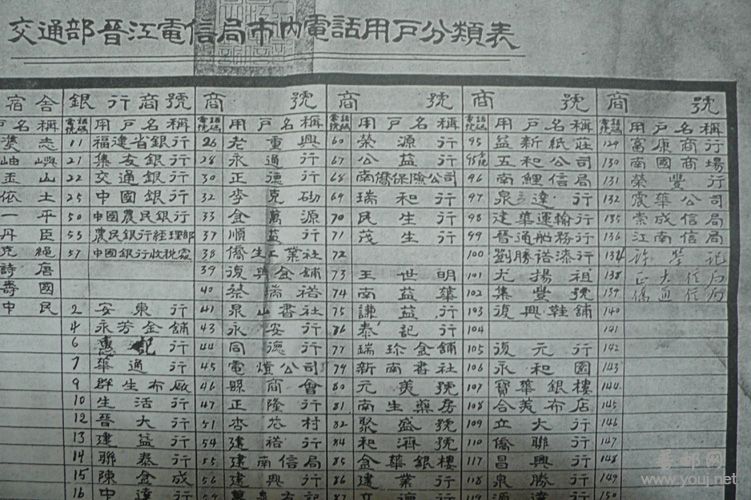 交通部晋江電信局市內電話用戶分類表
宿舍 銀行商號 商號 商號 商號 商號
戶名稱 電話號碼 用戶名稱 電話號碼 用戶名稱 電話號碼 用戶名稱 電話號碼 用戶名稱 電話號碼 用戶名稱
11 福建省銀行 26 老重興 60 榮源行 95 益新紙莊 129 萬康商行
嶼 21 集友銀行 28 永通行 67 公益行 五和公司 130 南國商場
玉山 22 交通銀行 30 正德行 68 南僑保險公司 96 南鯉信局 131 榮豐行
依土 25 中國銀行 32 李克砌 69 瑞和行 97 泉三達行 132 震華公司
一平 50 中國農民銀行 33 金萬源 70 民生行 98 建華運輸行 135 崇成信局
丹臣 53 農民銀行經理部 37 順益行 71 茂生行 99 晉通船務行 136 江南信局
57 中國銀行收稅處 38 僑生工業社 72 100 劉勝裕漆行
詩唐 39 復興金舖 73 王世明 101 尤揚祖 138 正大信局
壽國 40 蔡瑞裕 74 南益華 102 集豐號 139 僑通信局
中民 2 安東行 41 泉山書社 75 謙益行 103 復興鞋舖 140
4 永芳金舖 43 永安行 泰記行 104 141
6 44 同德行 77 瑞珍金舖 105 復元行 142
7 華通行 45 電燈公司 79 新南書社 106 永和園 143
9 群生布廠 46 縣商會 80 元美號 107 寶華銀樓 144
10 生活行 47 正隆行 81 南生藥房 108 合美布店 145
12 晉大行 51 村 82 聚盛號 109 立大行 146
13 建益行 54 建裕行 84 和濟號 110 僑聯行 147
14 聯泰行 55 建南信局 85 金華銀樓 117 昌興行 149
15 陳金成 56 建興行 86 建業行 118 泉勝行 150
16 中達行 87
晉郵网
www.youj.net